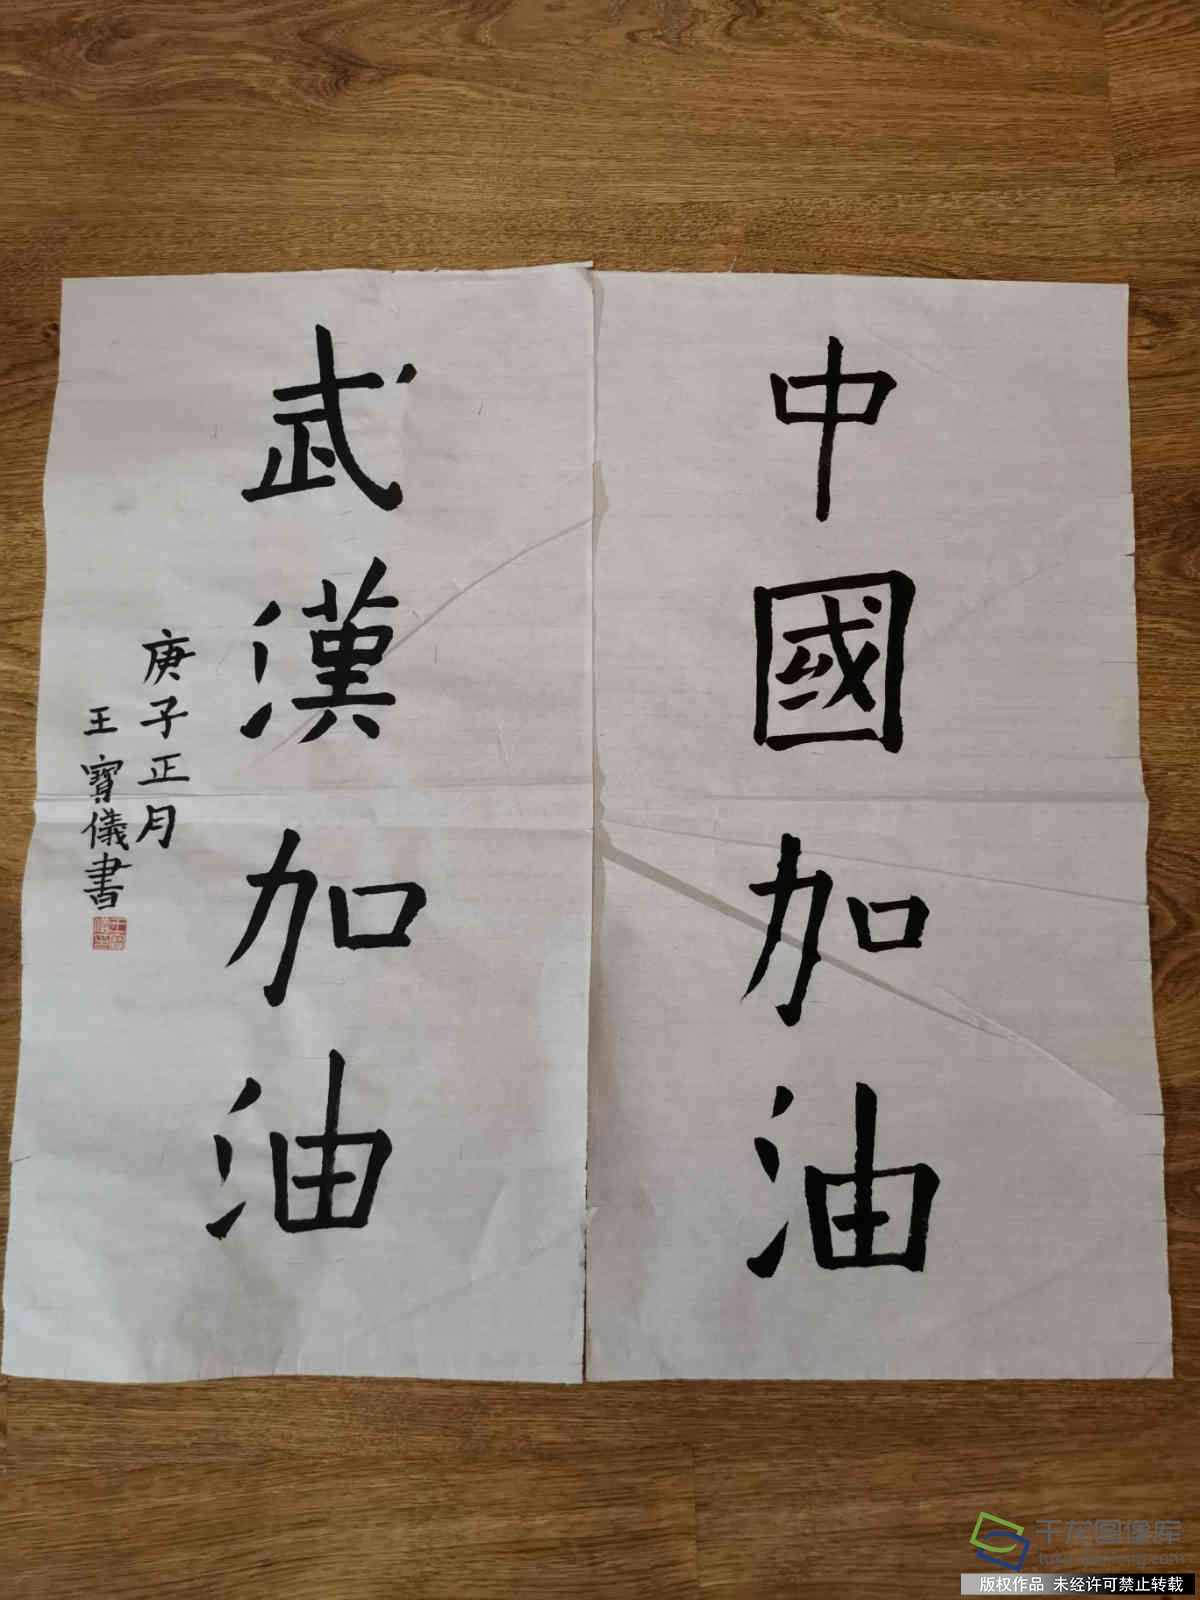 中國加油
武漢加油
庚子正月
王寶儀書
千龙图像库
tuku.qianlong.com
版权作品 未经许可禁止转载